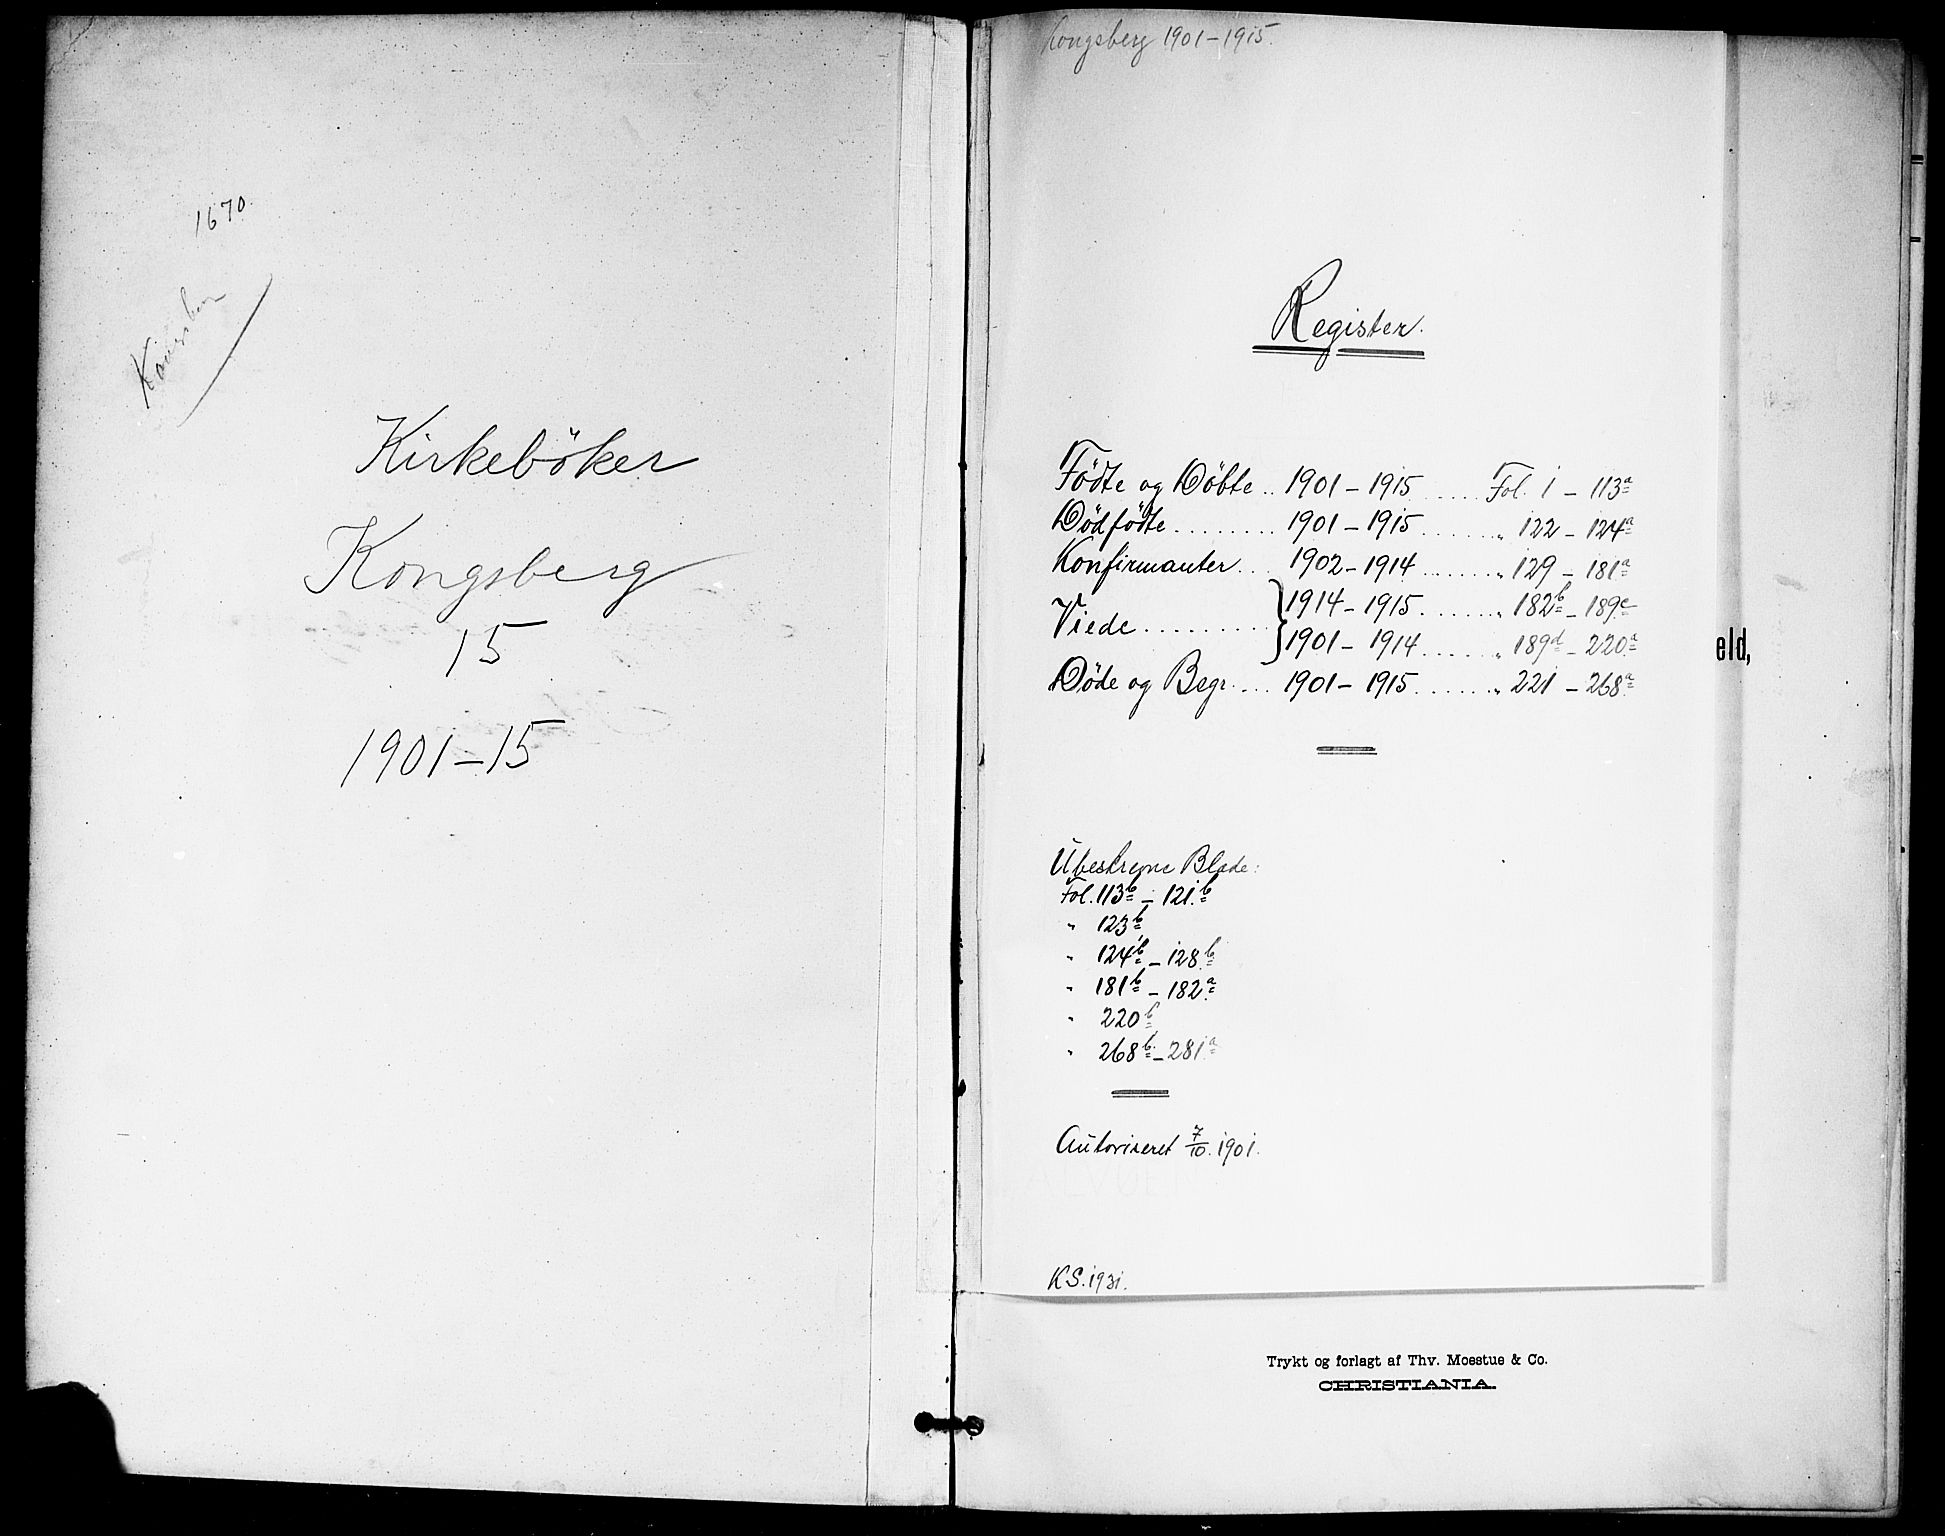 1670
Kirkeböker
Kongsberg
15
1901-15
Kongsberg 1901-1915.
Register.
Födte og Döbte .. 1901 - 1915 ..... Fol. 1 - 113a
Dödfödte ........ 1901 - 1915 ...... " 122 - 124a
Konfirmanter ... 1902 - 1914 ...... " 129 - 181a
Viede ......... } 1914 - 1915 ...... " 182b - 189c
1901 - 1914 ...... " 189d - 220a
Döde og Begr. ... 1901 - 1915 ...... " 221 - 268a
eld,
Ubeskrevne Blade:
Fol. 113b - 121b
" 123b
" 124b - 128b
" 181b - 182a
" 220b
" 268b - 281a
Autoriseret 7/10. 1901.
KS. 1931.
Trykt og forlagt af Thv. Moestue & Co.
CHRISTIANIA.